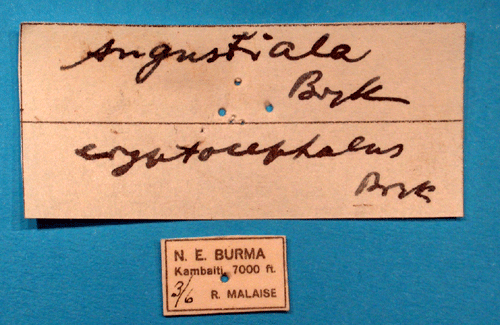 Angustiala
Bryk
cryptocephalus
Bryk
N. E. BURMA
Kambaiti, 7000 ft.
3/6 R. MALAISE